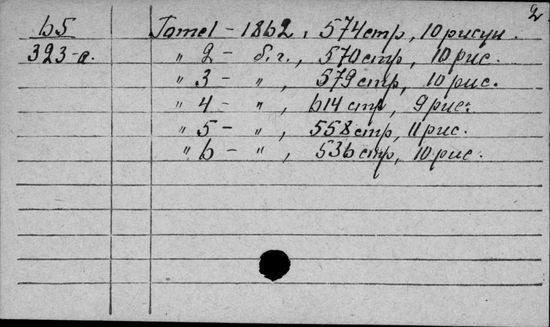 2
65 Tomel - 1862, 574 стр, 10 рисун.
323-а. " 2 - б.г., 570 стр, 10 рис.
" 3 - ", 579 стр, 10 рис.
" 4 - ", 614 стр, 9 рис.
" 5 - ", 558 стр, 11 рис.
" 6 - ", 536 стр, 10 рис.